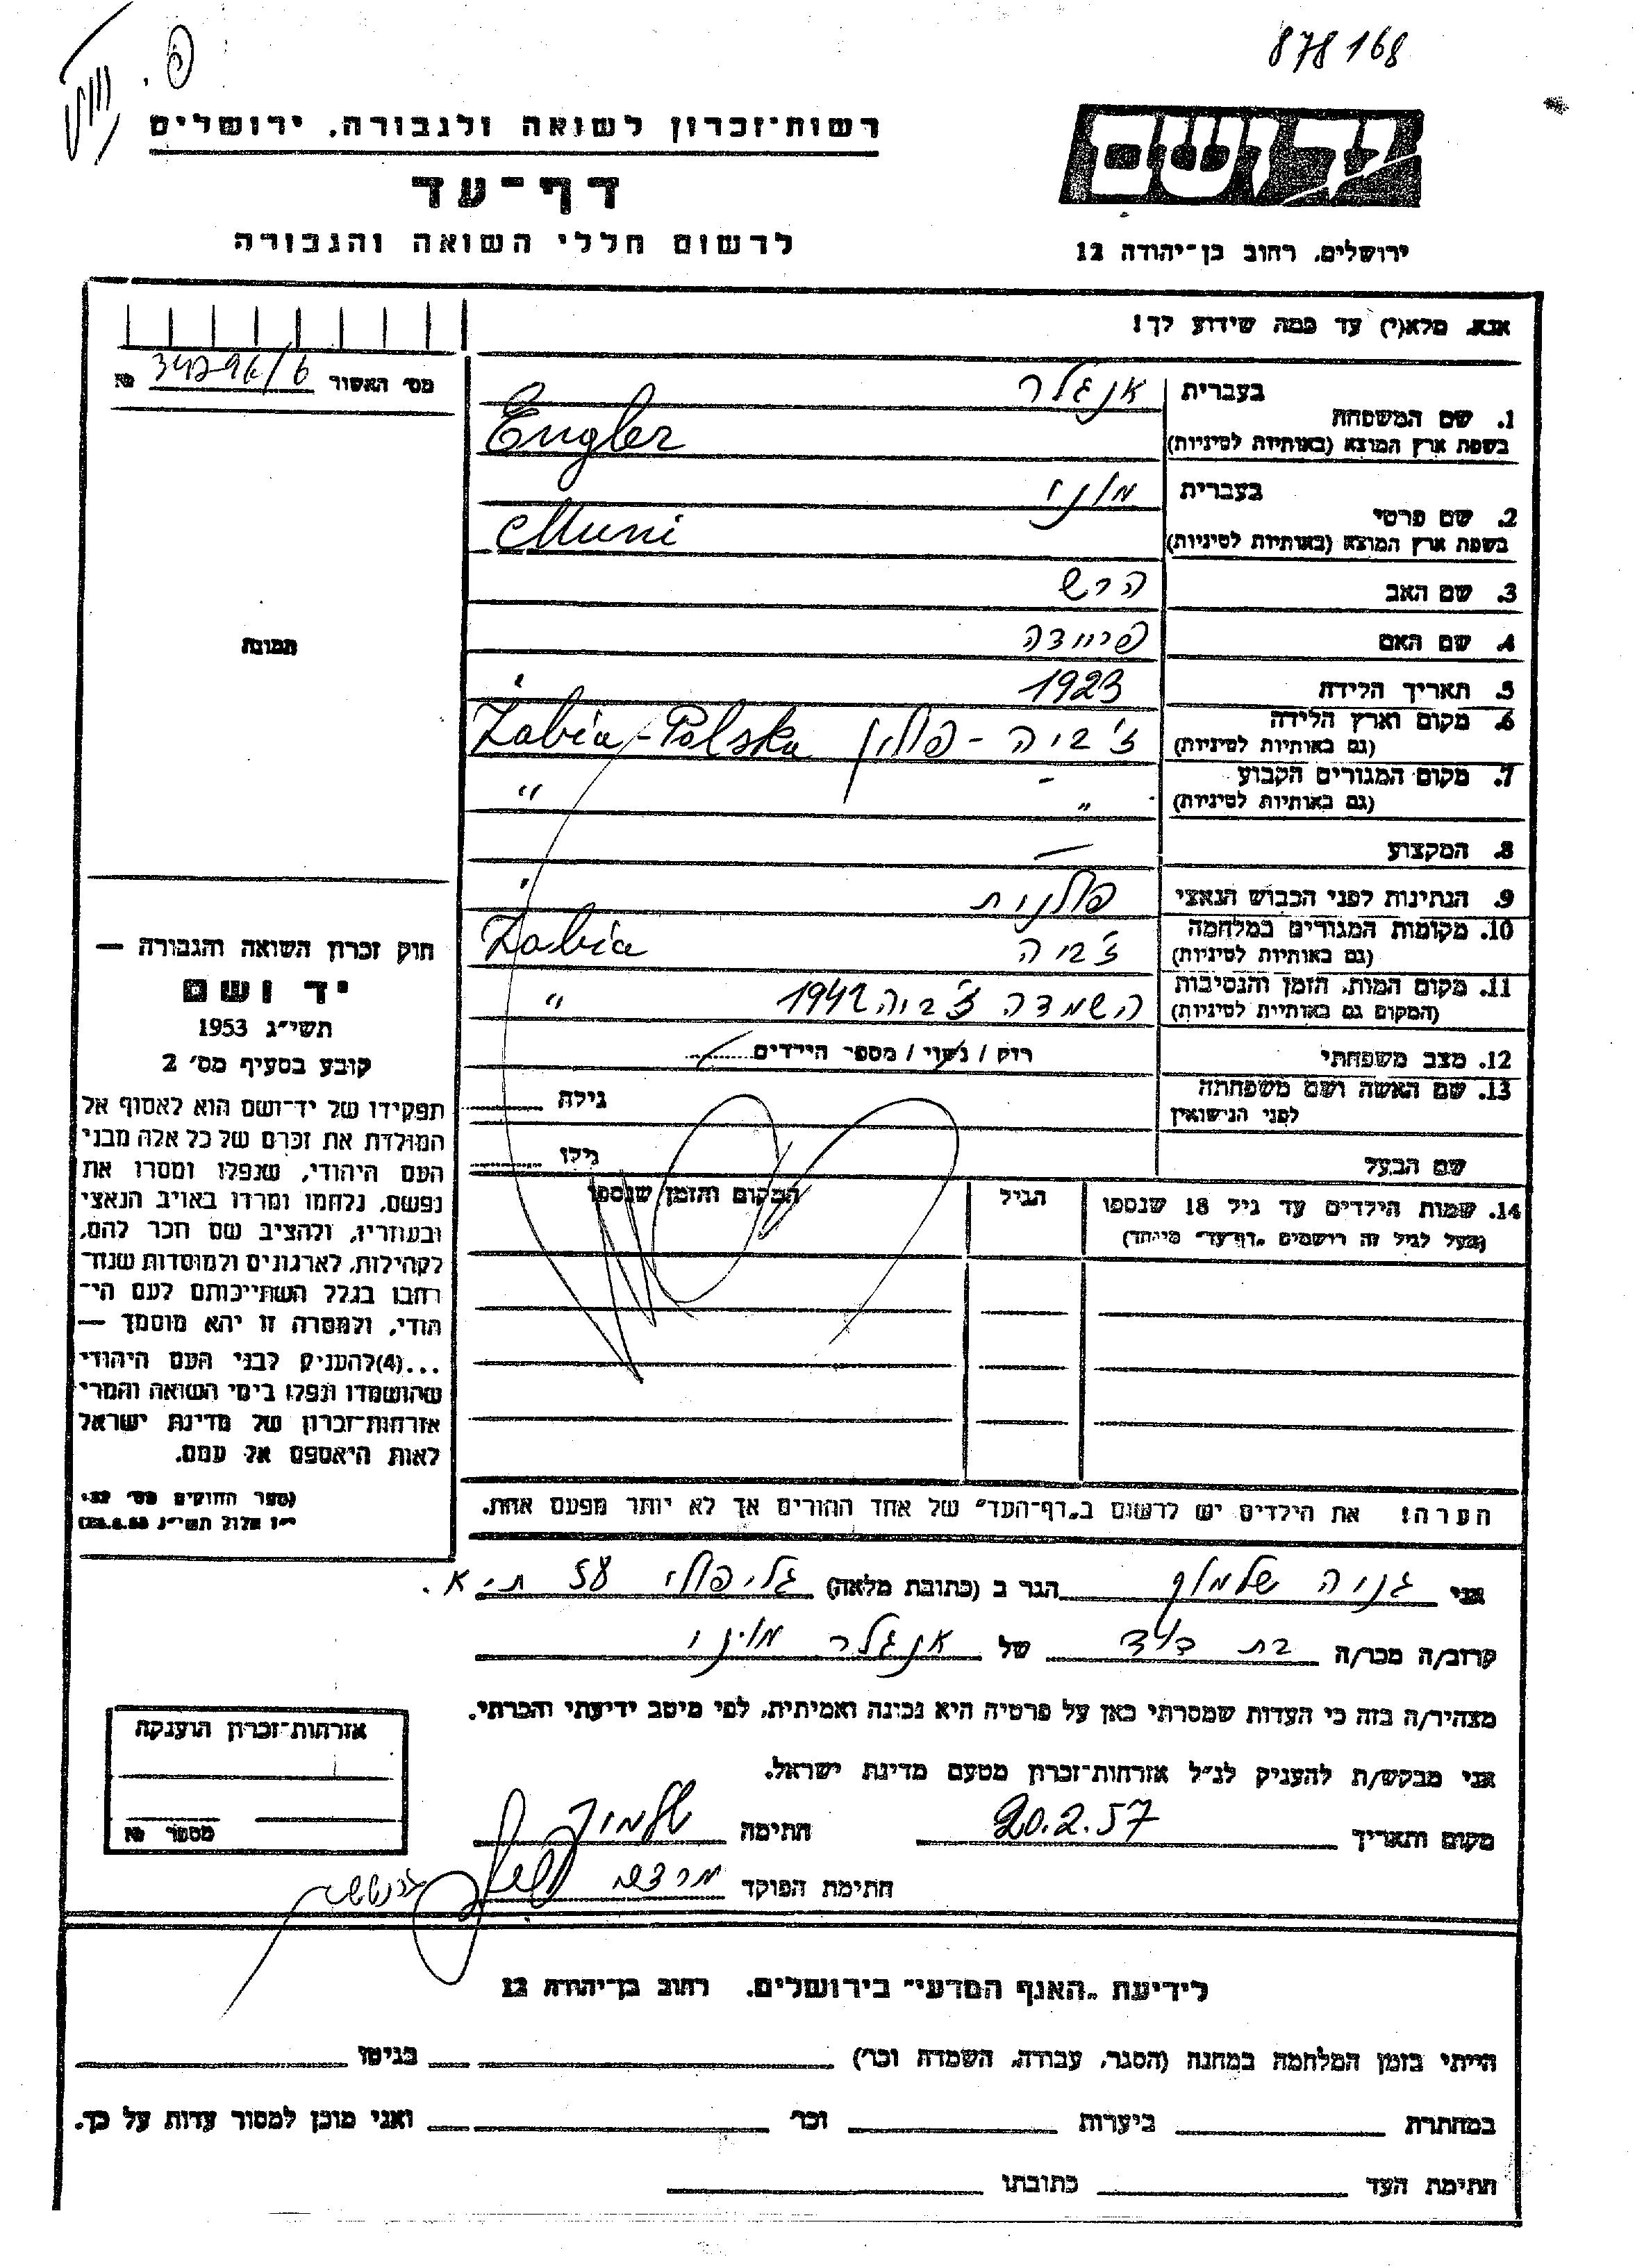 878168
רשות־זכרון לשואה ולגבורה, ירושלים
יד ושם
דף־עד
לרשום חללי השואה והגבורה
ירושלים, רחוב בן־יהודה 12
אנא, מלא(י) עד כמה שידוע לך!
מס׳ האשור № 34796/6
1. שם המשפחה בעברית אנגלר
בשפת ארץ המוצא (באותיות לטיניות) Engler
2. שם פרטי בעברית מוני
בשפת ארץ המוצא (באותיות לטיניות) Muni
3. שם האב הרש
4. שם האם
תמונה
5. תאריך הלידה 1923
6. מקום וארץ הלידה (גם באותיות לטיניות) ז׳ביה - פולין Żabia-Polska
7. מקום המגורים הקבוע (גם באותיות לטיניות) - " "
8. המקצוע —
9. הנתינות לפני הכבוש הנאצי פולנית
10. מקומות המגורים במלחמה (גם באותיות לטיניות) ז׳ביה Żabia
11. מקום המות, הזמן והנסיבות (המקום גם באותיות לטיניות) השמדה ז׳ביה 1942 "
12. מצב משפחתי רווק / נשוי / מספר הילדים
13. שם האשה ושם משפחתה לפני הנישואין גילה
שם הבעל גילו
14. שמות הילדים עד גיל 18 שנספו הגיל המקום והזמן שנספו
(מעל לגיל זה רושמים „דף־עד״ מיוחד)
חוק זכרון השואה והגבורה —
יד ושם
תשי״ג 1953
קובע בסעיף מס׳ 2
תפקידו של יד־ושם הוא לאסוף אל
המולדת את זכרם של כל אלה מבני
העם היהודי, שנפלו ומסרו את
נפשם, נלחמו ומרדו באויב הנאצי
ובעוזריו, ולהציב שם וזכר להם,
לקהילות, לארגונים ולמוסדות שנח־
רבו בגלל השתייכותם לעם הי־
הודי, ולמטרה זו יהא מוסמך —
...(4)להעניק לבני העם היהודי
שהושמדו ונפלו בימי השואה והמרי
אזרחות־זכרון של מדינת ישראל
לאות היאספם אל עמם.
(ספר החוקים מס׳ 132,
י״ז אלול תשי״ג 28.8.53)
הערה! את הילדים יש לרשום ב„דף־העד״ של אחד ההורים אך לא יותר מפעם אחת.
אני גניה שלמוף הגר ב (כתובת מלאה) גליפולי 58 ת.א.
קרוב/ה מכר/ה בת דוד של אנגלר מוני
מצהיר/ה בזה כי העדות שמסרתי כאן על פרטיה היא נכונה ואמיתית, לפי מיטב ידיעתי והכרתי.
אני מבקש/ת להעניק לנ״ל אזרחות־זכרון מטעם מדינת ישראל.
מקום ותאריך 20.2.57 חתימה
חתימת הפוקד
אזרחות־זכרון הוענקה
מספר №
לידיעת „האגף המדעי״ בירושלים, רחוב בן־יהודה 12
הייתי בזמן המלחמה במחנה (הסגר, עבודה, השמדה וכו׳) בגיטו
במחתרת ביערות וכו׳ ואני מוכן למסור עדות על כך.
חתימת העד כתובתו